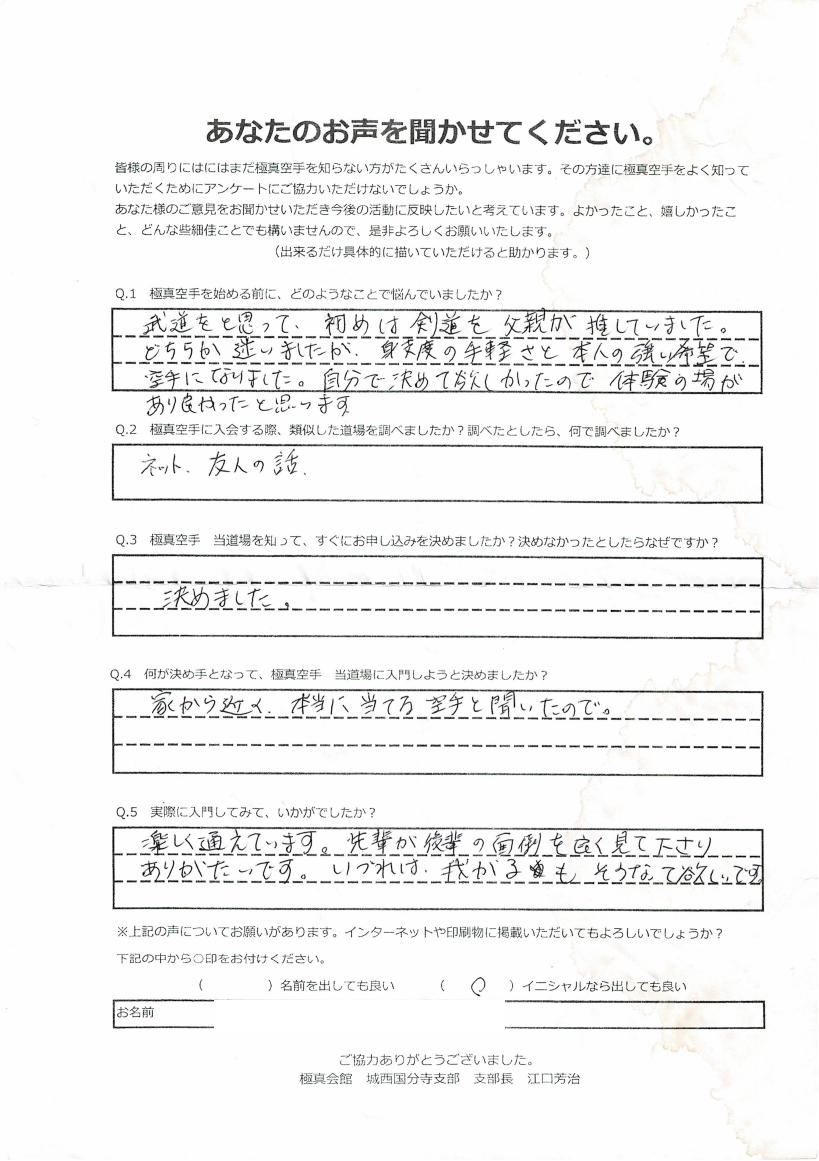 あなたのお声を聞かせてください。
皆様の周りにはにはまだ極真空手を知らない方がたくさんいらっしゃいます。その方達に極真空手をよく知って
いただくためにアンケートにご協力いただけないでしょうか。
あなた様のご意見をお聞かせいただき今後の活動に反映したいと考えています。よかったこと、嬉しかったこ
と、どんな些細佳ことでも構いませんので、是非よろしくお願いいたします。
（出来るだけ具体的に描いていただけると助かります。）
Q.1　極真空手を始める前に、どのようなことで悩んでいましたか？
武道をと思って、初めは剣道を父親が推していました。
どちらか迷いましたが、身支度の手軽さと本人の強い希望で、
空手になりました。自分で決めて欲しかったので体験の場が
あり良かったと思います
Q.2　極真空手に入会する際、類似した道場を調べましたか？調べたとしたら、何で調べましたか？
ネット、友人の話、
Q.3　極真空手　当道場を知って、すぐにお申し込みを決めましたか？決めなかったとしたらなぜですか？
決めました。
Q.4　何が決め手となって、極真空手　当道場に入門しようと決めましたか？
家から近く、本当に当てる空手と聞いたので。
Q.5　実際に入門してみて、いかがでしたか？
楽しく通えています。先輩が後輩の面倒を良く見て下さり
ありがたいです。いづれは、我が子も そうなって欲しいです。
※上記の声についてお願いがあります。インターネットや印刷物に掲載いただいてもよろしいでしょうか？
下記の中から○印をお付けください。
（　　　　）名前を出しても良い　　（　○　）イニシャルなら出しても良い
お名前
ご協力ありがとうございました。
極真会館　城西国分寺支部　支部長　江口芳治